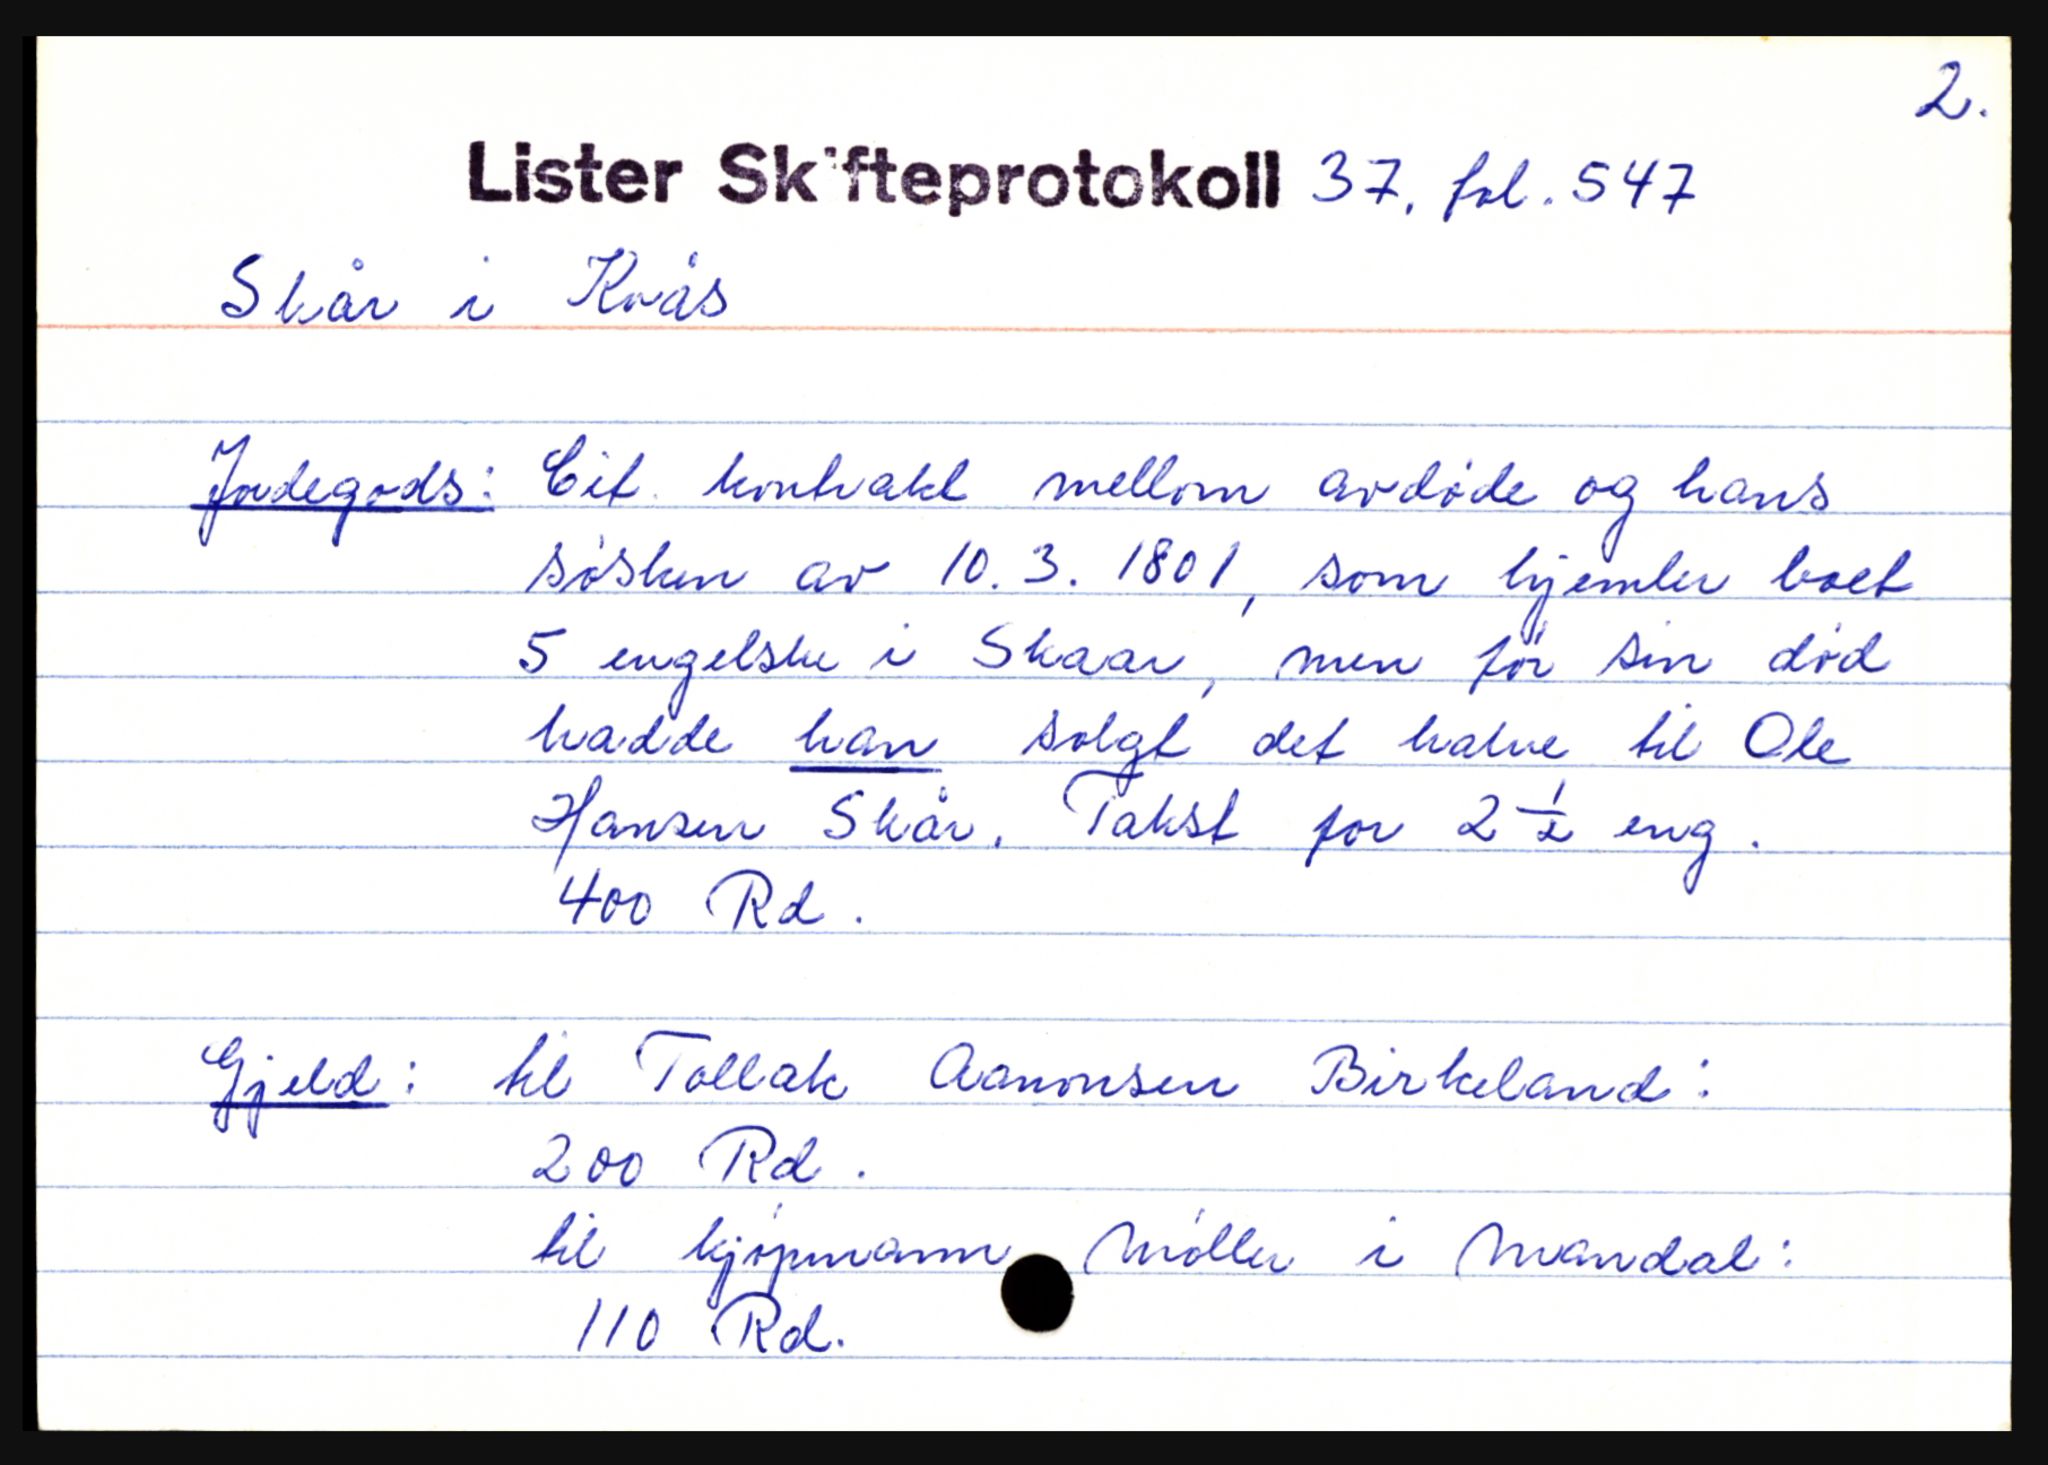 2.
Lister Skifteprotokoll 37, fol. 547
Skår i Kvås
Jordegods: Cit. kontrakt mellom avdøde og hans
søsken av 10. 3. 1801, som hjemler boet
5 engelske i Skaar, men før sin død
hadde han solgt det halve til Ole
Hansen Skår. Takst for 2 1/2 eng.
400 Rd.
Gjeld: til Tollak Aanonsen Birkeland:
200 Rd.
til kjøpmann Møller i Mandal:
110 Rd.